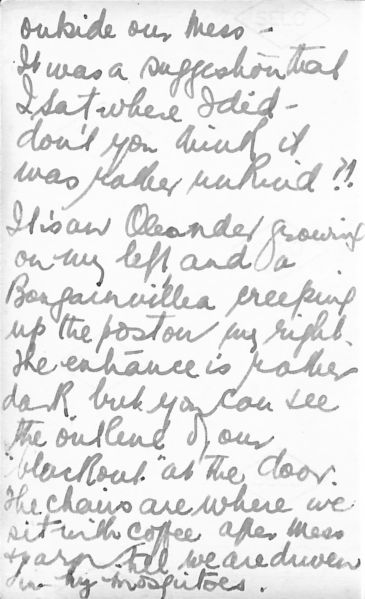 outside our mess -
It was a suggestion that
I sat where I did -
don't you think it
was rather unkind ?!
It is an Oleander growing
on my left, and a
Bougainvillea creeping
up the post on my right.
The entrance is rather
dark but you can see
the outline of our
"blackout" at the door.
The chairs are where we
sit with coffee after mess
& yarn till we are driven
in by mosquitoes.